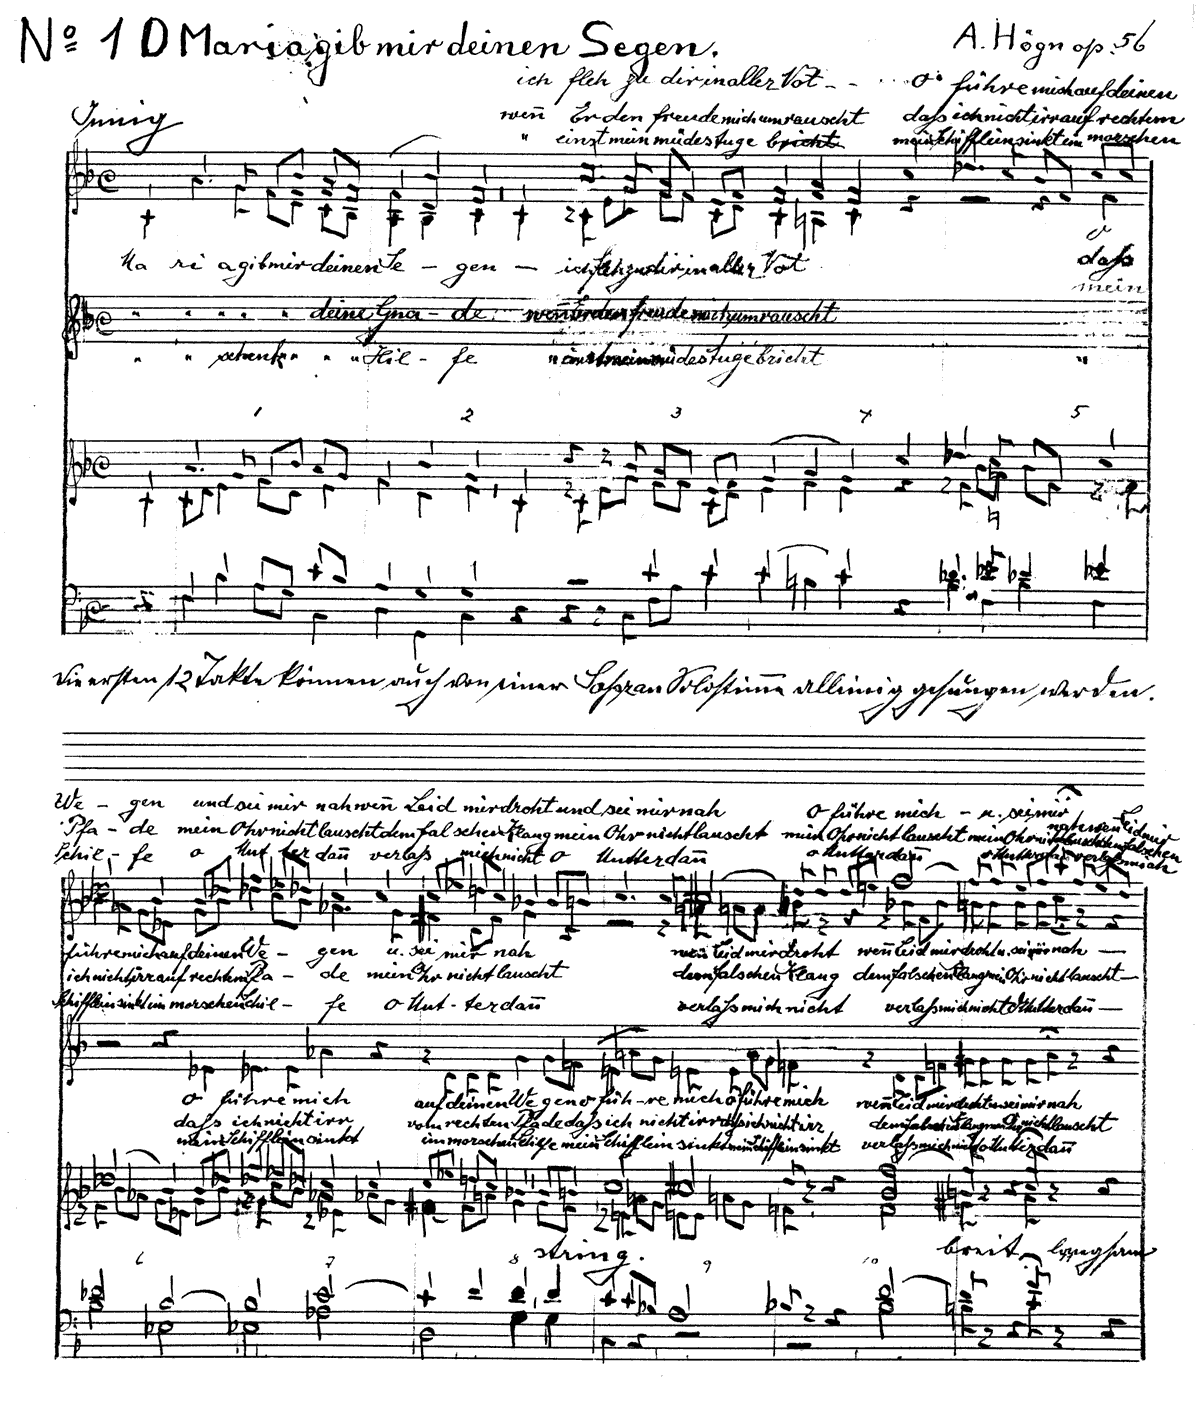 No 1 O Maria gib mir deinen Segen.
A. Högn op. 56
Innig
ich fleh zu dir in aller Not - - O führe mich auf deinen
wen̄ Erdenfreude mich umrauscht dass ich nicht irr auf rechtem
" einst mein müdes Auge bricht mein Schifflein sinkt im morschen
Ma ri a gib mir deinen Se - gen - ich fleh zu dir in aller Not O
" " " " " deine Gna - de wen̄ Erdenfreude mich umrauscht dass
" " schenk " " " Hil - fe " einst mein müdes Auge bricht mein
1 2 3 4 5
Die ersten 12 Takte können auch von einer Sopran Solostimme alleinig gesungen werden.
We - gen und sei mir nah wen̄ Leid mir droht und sei mir nah O führe mich - u. sei mir nah wen̄ Leid mir
Pfa - de mein Ohr nicht lauscht dem falschen Klang mein Ohr nicht lauscht mein Ohr nicht lauscht mein Ohr nicht lauscht dem falschen
Schil - fe o Mut ter dan̄ verlass mich nicht O Mutter dan̄ o Mutter dan̄ o Mutter dan̄ verlass mich
führe mich auf deinen We - gen u. sei mir nah wen̄ Leid mir droht wen̄ Leid mir droht u. sei mir nah -
ich nicht irr auf rechtem Pfa - de mein Ohr nicht lauscht dem falschen Klang dem falschen Klang mein Ohr nicht lauscht -
Schifflein sinkt im morschen Schil - fe O Mut - ter dan̄ verlass mich nicht verlass mich nicht O Mutter dan̄ -
O führe mich auf deinen We gen o füh - re mich o führe mich wen̄ Leid mir droht u sei mir nah
dass ich nicht irr vom rechten Pfade dass ich nicht irr dass ich nicht irr dem falschen Klang mein Ohr nicht lauscht
mein Schifflein sinkt im morschen Schilfe mein Schifflein sinkt mein Schifflein sinkt verlass mich nicht o Mutter dan̄
string. breit langsam
6 7 8 9 10